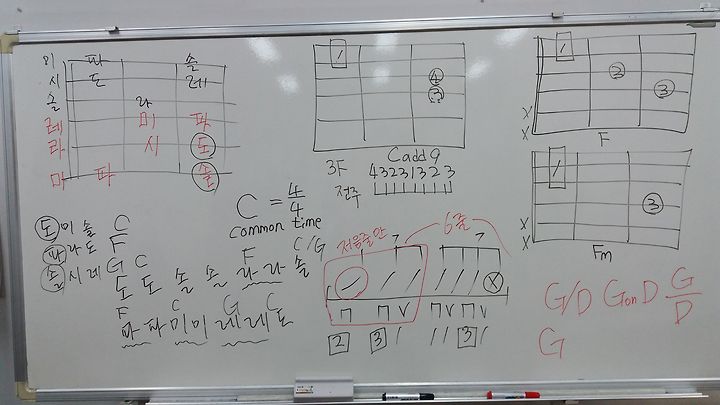 미 파 솔
시 도 레
솔 라
레 미 파
라 시 도
미 파 솔
1
4
3
3F Cadd9
전주 43231323
1
3
3
x
x
F
1
3
x
x
Fm
도 미 솔 C
파 라 도 F
솔 시 레 G
C = 4/4
common time
C F C/G
도 도 솔 솔 라 라 솔
F C G C
파 파 미 미 레 레 도
저음줄만 6줄
2 3 3
G/D GonD G/D
G